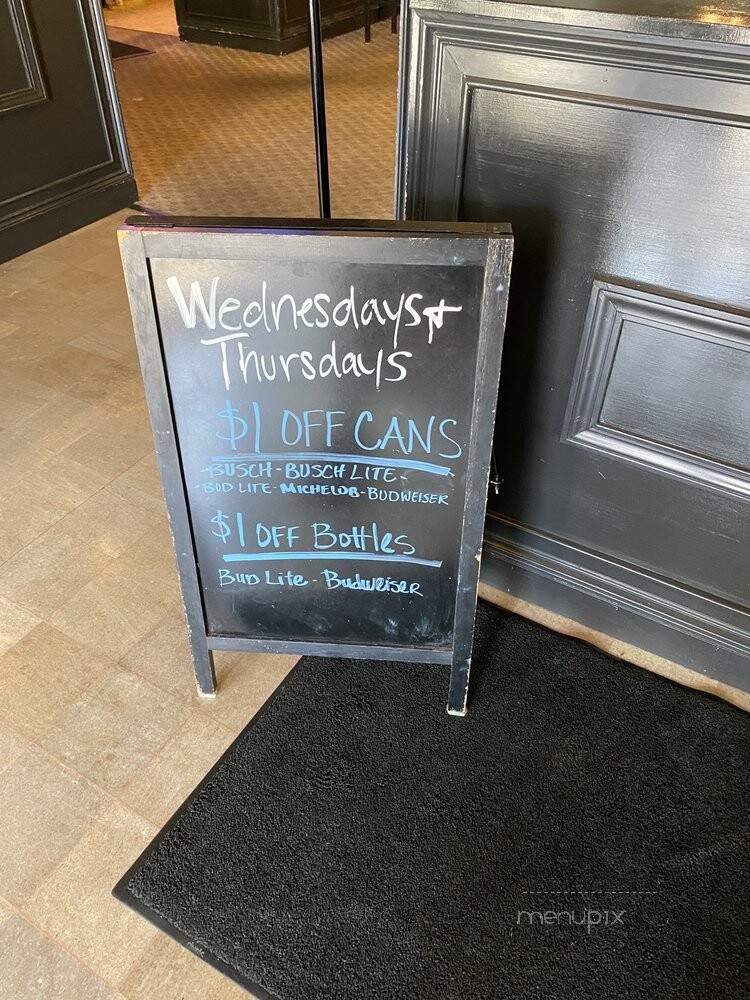 Wednesdays &
Thursdays
$1 OFF CANS
-BUSCH-BUSCH LITE-
-BUD LITE-MICHELOB-BUDWEISER
$1 OFF Bottles
BUD Lite - Budweiser
menupix